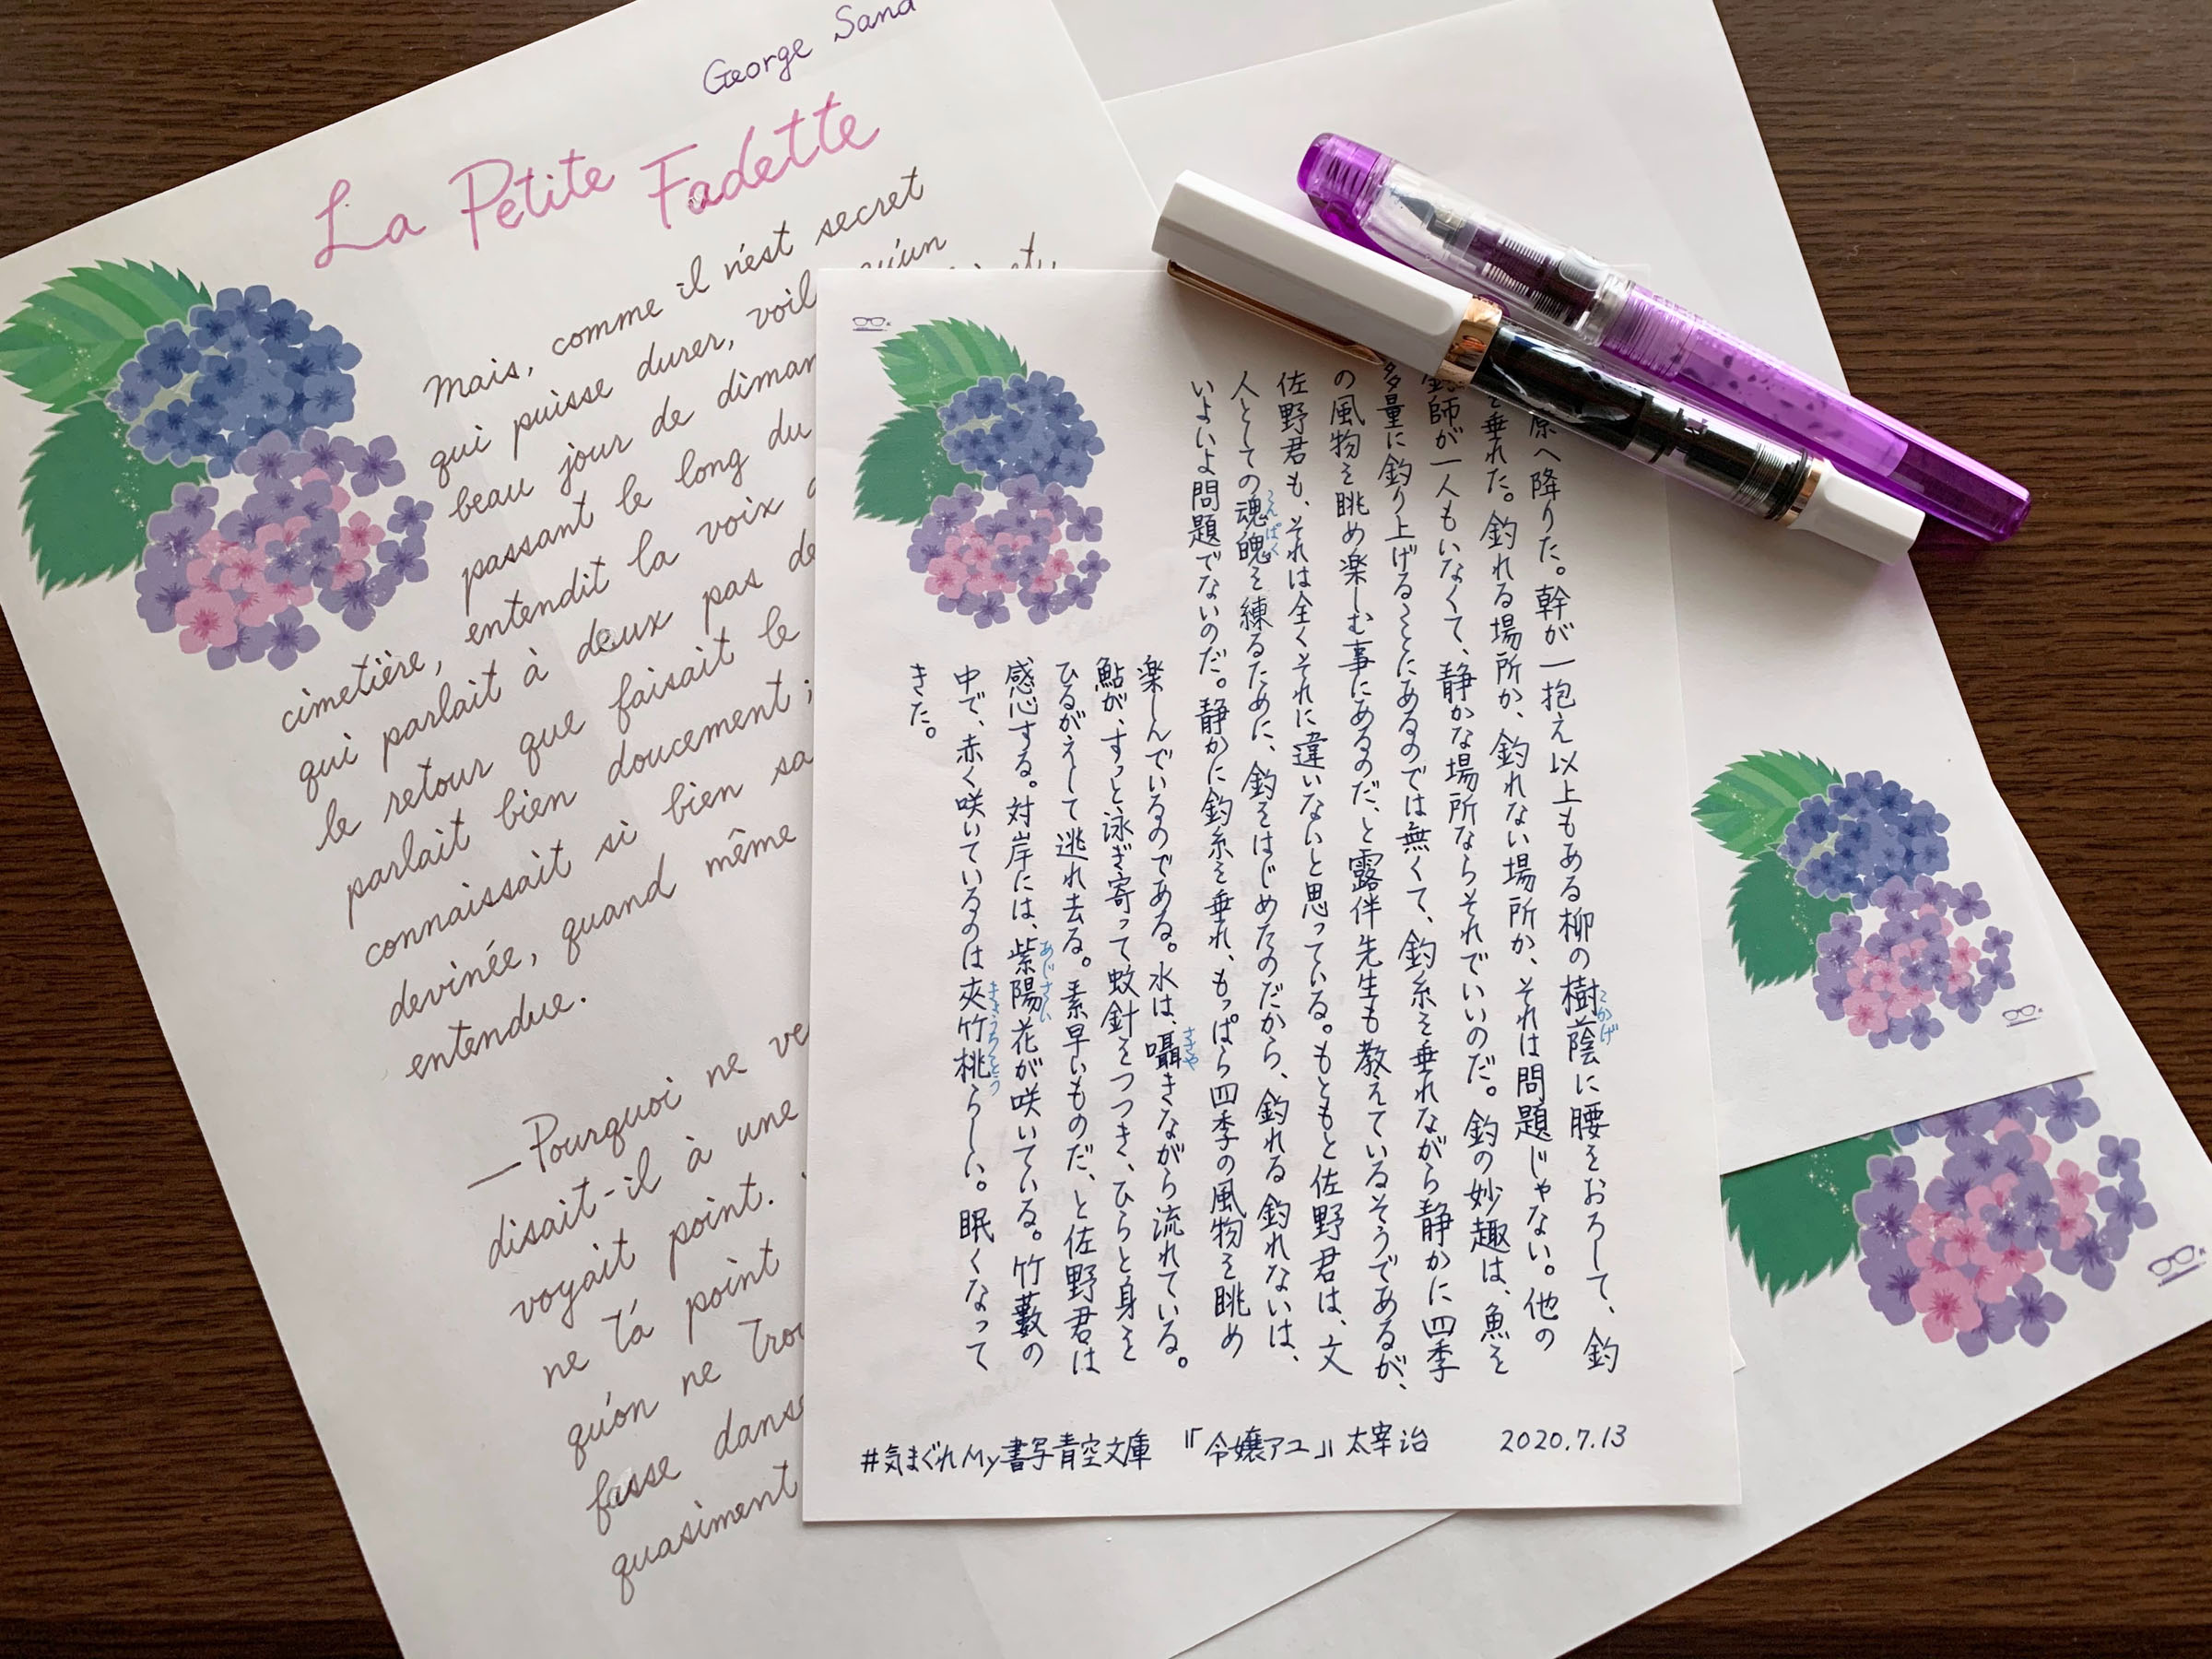 George Sand
La Petite Fadette
mais, comme il n'est secret
qui puisse durer, voilà qu'un
beau jour de diman
passant le long du
cimetière, entendit la voix
qui parlait à deux pas de
le retour que faisait le
parlait bien doucement ;
connaissait si bien sa
devinée, quand même
entendue.
—Pourquoi ne ve
disait-il à une
voyait point.
ne t'a point
qu'on ne trou
fasse danse
quasiment
原へ降りた。幹が一抱え以上もある柳の樹蔭に腰をおろして、釣
こかげ
を垂れた。釣れる場所か、釣れない場所か、それは問題じゃない。他の
釣師が一人もいなくて、静かな場所ならそれでいいのだ。釣の妙趣は、魚を
多量に釣り上げることにあるのでは無くて、釣糸を垂れながら静かに四季
の風物を眺め楽しむ事にあるのだ、と露伴先生も教えているそうであるが、
佐野君も、それは全くそれに違いないと思っている。もともと佐野君は、文
人としての魂魄を練るために、釣をはじめたのだから、釣れる釣れないは、
こんぱく
いよいよ問題でないのだ。静かに釣糸を垂れ、もっぱら四季の風物を眺め
楽しんでいるのである。水は、囁きながら流れている。
ささや
鮎が、すっと泳ぎ寄って蚊針をつつき、ひらと身を
ひるがえして逃れ去る。素早いものだ、と佐野君は
感心する。対岸には、紫陽花が咲いている。竹藪の
あじさい
中で、赤く咲いているのは夾竹桃らしい。眠くなって
きょうちくとう
きた。
#気まぐれMy書写青空文庫 『令嬢アユ』太宰治 2020.7.13